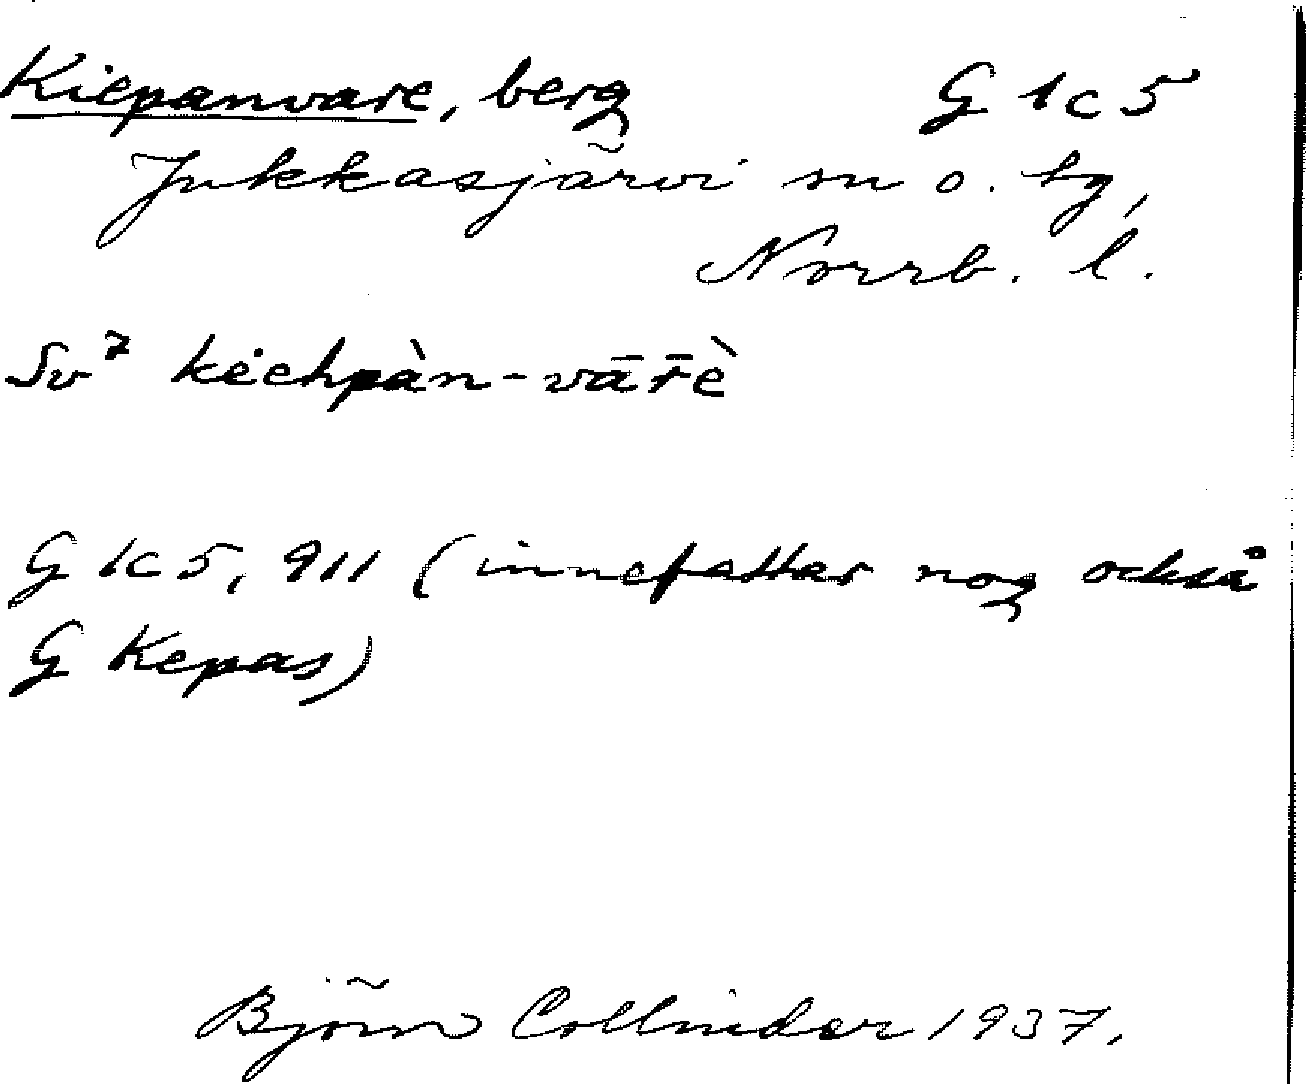 Kiepanvare, berg G 1c 5
Jukkasjärvi sn o. tg,
Norrb. l.
Sv⁷ kėehpàn-vār̄è̄
G 1c 5, 911 (innefattar nog också
G Kepas)
Björn Collinder 1937.